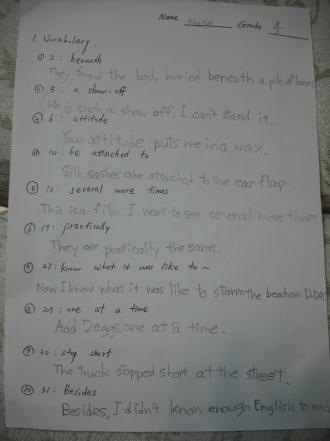 Name Grade A
1. Vocabulary
① 2: beneath
They found the body buried beneath a pile of leaves
② 5: a show-off
He is such a show off. I can't stand it.
③ 6: attitude
Your attitude puts me in a wax.
④ 10: be attached to
Silk sashes are attached to the ear flap.
⑤ 13: several more times
This is a film I want to see several more times
⑥ 19: practically
They are practically the same.
⑦ 27: know what it was like to ~
Now I know what it was like to storm the beach on D-Day
⑧ 29: one at a time
Add 2eggs, one at a time.
⑨ 30: stop short
The truck stopped short at the street.
⑩ 31: Besides
Besides, I didn't know enough English to